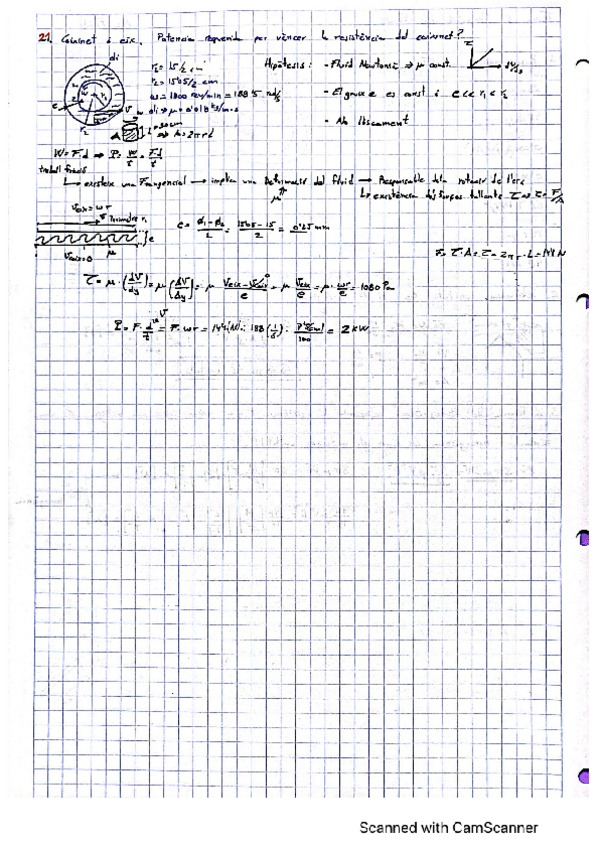 21. Coixinet i eix. Potencia requerida per vèncer la resistència del coixinet?
di
r₁ = 15/2 cm
r₂ = 15'05/2 cm
ω = 1800 rev/min = 188'5 rad/s
di ⇒ μ = 0'018 kg/m·s
L = 30 cm
A ⇒ A = 2πrL
e
r₂
r₁
Hipòtesis: - Fluid Newtonià ⇒ μ const.
τ
dv/dy
- El gruix e es const i e << r₁ < r₂
- No lliscament
W = F·d ⇒ P = W/t = F·d/t
treball
↳ existeix una F tangencial → implica una Deformació del fluid → Responsable de la rotació de l'eix
μ
↳ existència de forces tallants τ ⇒ τ = F/A
V eix = ωr
V
e
V coix = 0
μ
e = (φ₁ - φ₂)/2 = (15'05 - 15)/2 = 0'25 mm
F = τ·A = τ · 2πr · L = 144 N
τ = μ · (dV/dy) = μ (ΔV/Δy) = μ (V eix - V coix⁰)/e = μ V eix/e = μ · ωr/e = 1080 Pa
P = F · d/t = F · ωr = 144 (N) · 188 (1/s) · 7'5 (cm)/100 = 2 kW
Scanned with CamScanner